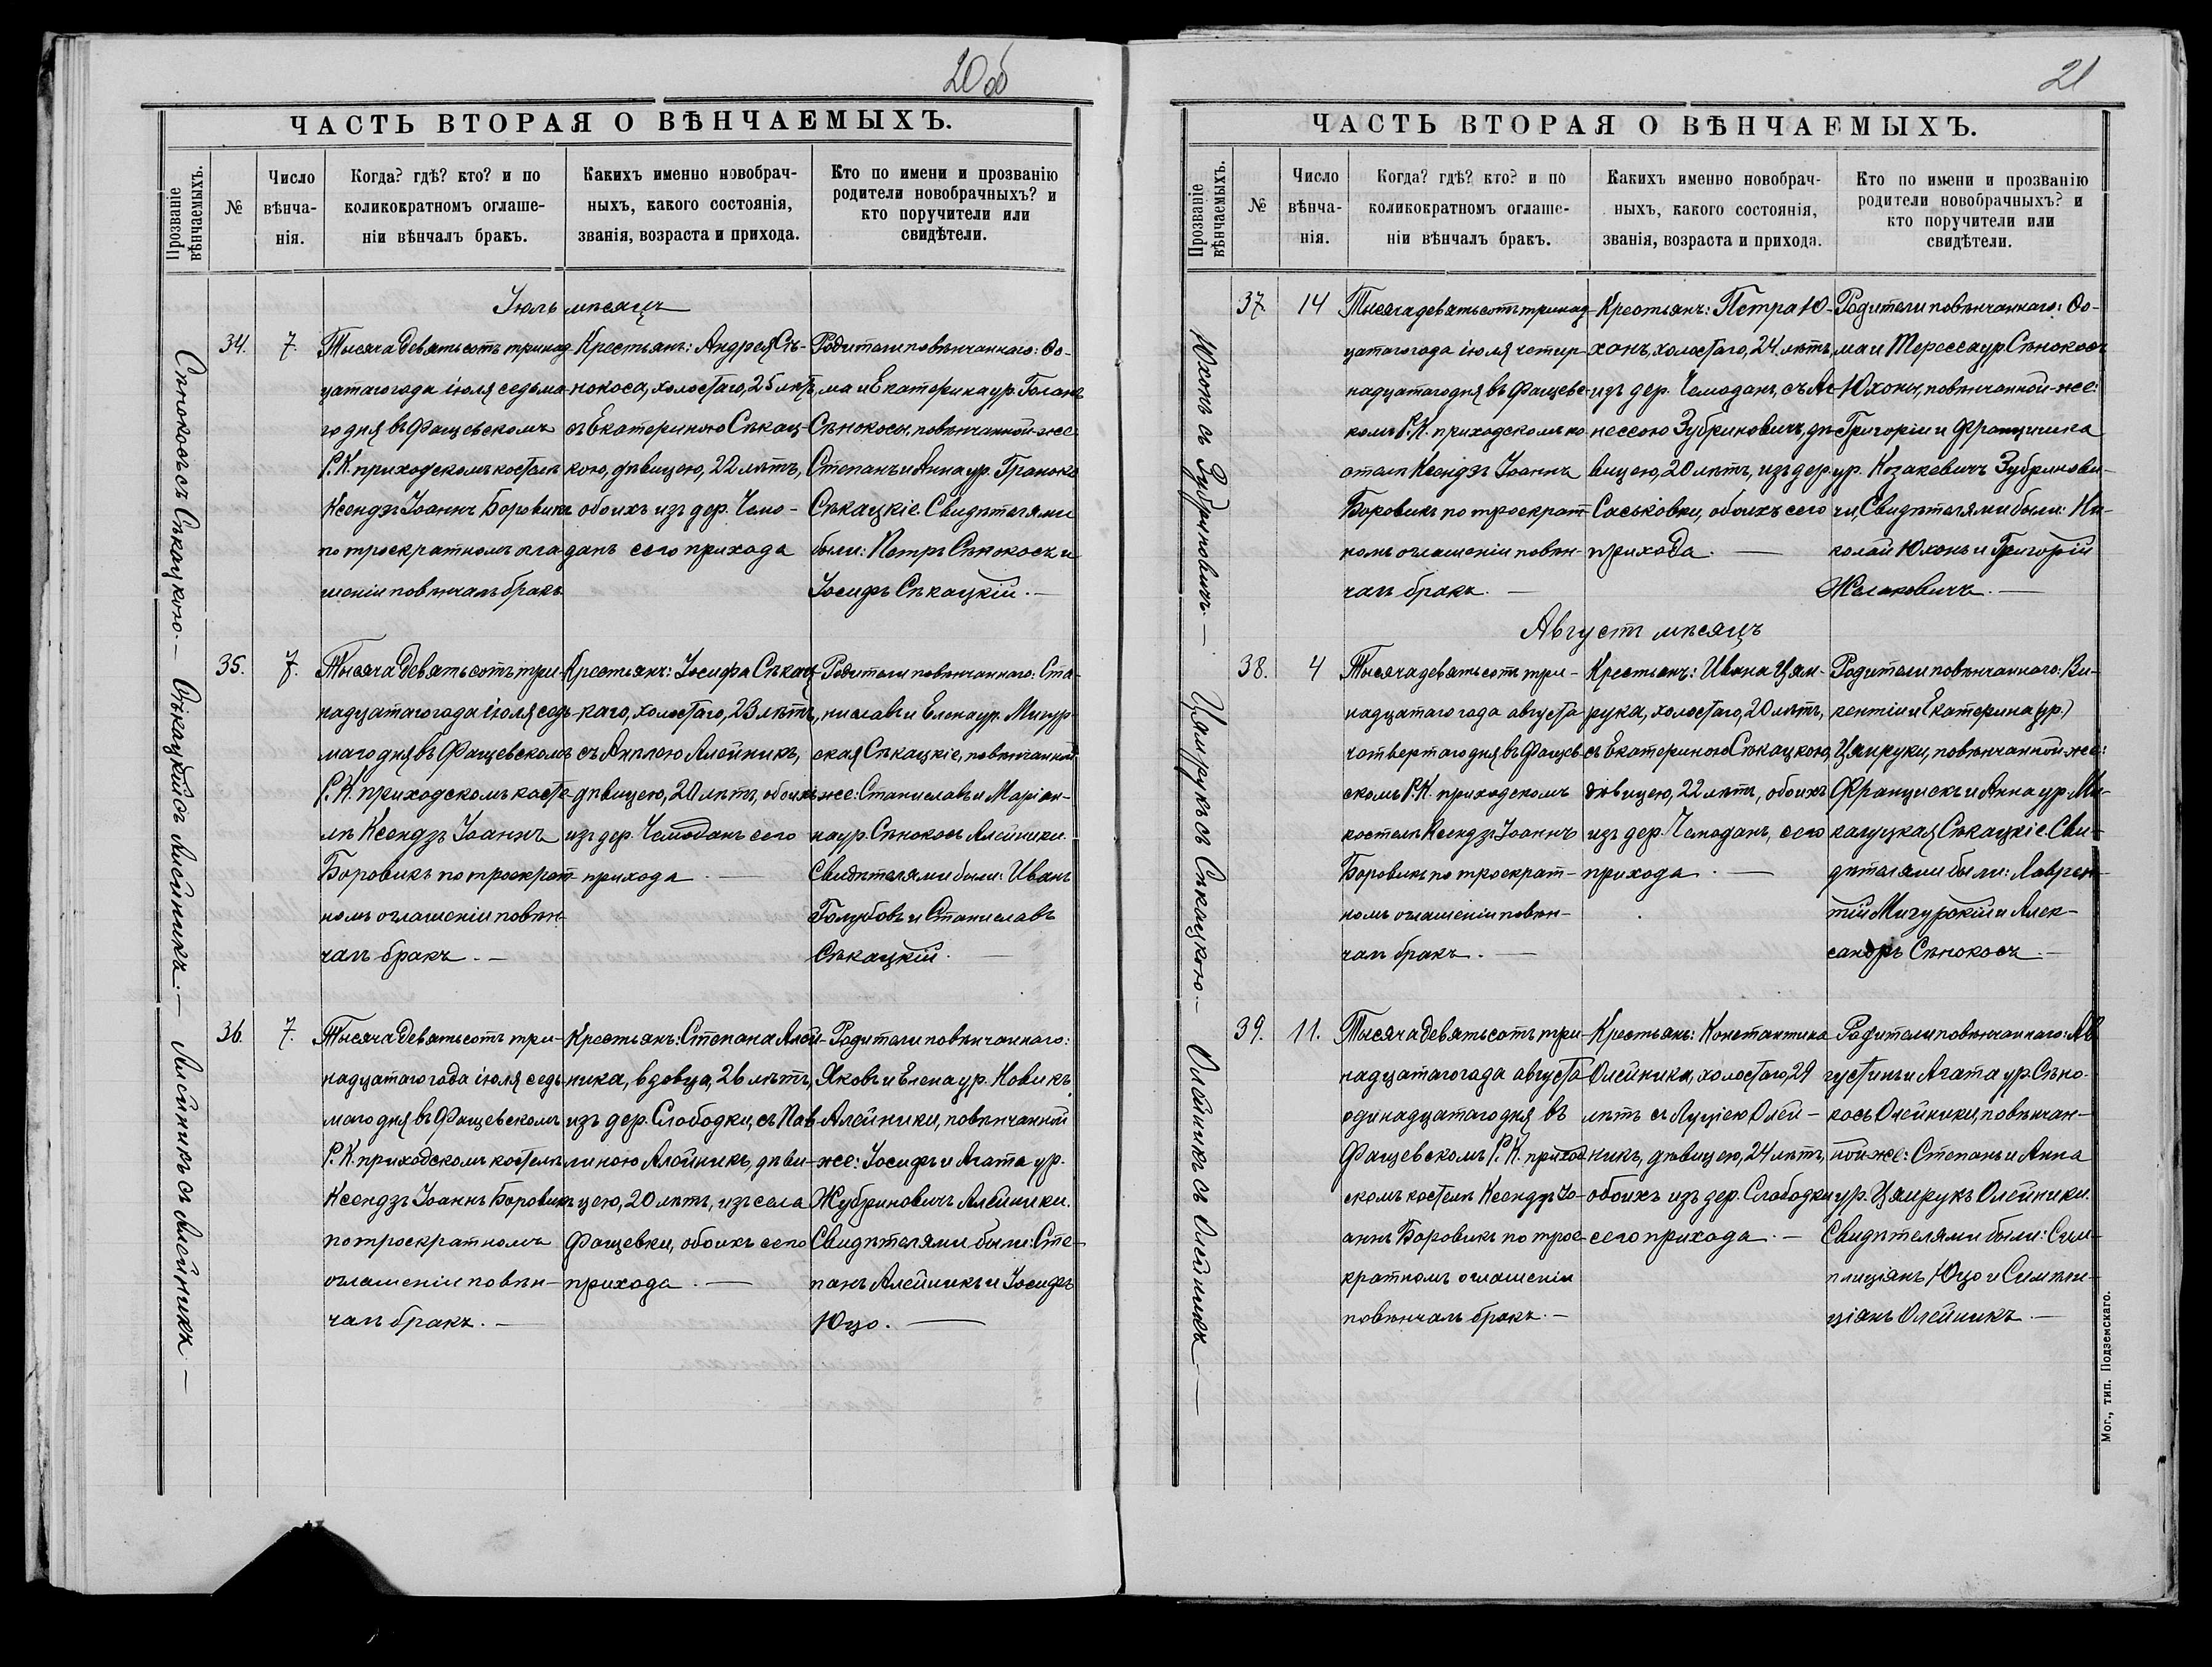 20об
ЧАСТЬ ВТОРАЯ О ВѢНЧАЕМЫХЪ.
Прозваніе вѣнчаемыхъ.
№
Число вѣнча-нія.
Когда? гдѣ? кто? и по
коликократномъ оглаше-
ніи вѣнчалъ бракъ.
Какихъ именно новобрач-
ныхъ, какого состоянія,
званія, возраста и прихода.
Кто по имени и прозванію
родители новобрачныхъ? и
кто поручители или
свидѣтели.
Іюль мѣсяцъ
Сѣнокосъ съ Сѣкацкою. —
34.
7.
Тысяча девятьсотъ тринад
цатаго года іюля седьма-
го дня въ Фащевскомъ
Р. К. приходскомъ костелѣ
Ксендзъ Іоаннъ Боровикъ
по троекратномъ огла
шеніи повѣнчалъ бракъ
Крестьянъ: Андрея Сѣ-
нокоса, холостаго, 25 лѣтъ,
съ Екатериною Сѣкац-
кою, дѣвицею, 22 лѣтъ,
обоихъ изъ дер. Чемо-
данъ сего прихода
Родители повѣнчаннаго: Ѳо-
ма и Екатерина ур. Голакъ
Сѣнокосы, повѣнчанной-же
Степанъ и Анна ур.
Сѣкацкіе. Свидѣтелями
были: Петръ Сѣнокосъ и
Іосифъ Сѣкацкій. —
Сѣкацкій съ Алейникъ. —
35.
7.
Тысяча девятьсотъ три-
надцатаго года іюля седь-
маго дня въ Фащевскомъ
Р. К. приходскомъ косте-
лѣ Ксендзъ Іоаннъ
Боровикъ по троекрат-
номъ оглашеніи повѣн-
чалъ бракъ. —
Крестьянъ: Іосифа Сѣкац-
каго, холостаго, 23 лѣтъ,
съ Анелею Алейникъ,
дѣвицею, 20 лѣтъ, обоихъ
изъ дер. Чемоданъ сего
прихода. —
Родители повѣнчаннаго: Ста-
ниславъ и Елена ур. Мигур-
ская Сѣкацкіе, повѣнчанной
же: Станиславъ и Маріан-
на ур. Сѣнокосъ Алейники.
Свидѣтелями были: Иванъ
Голубовъ и Станиславъ
Сѣкацкій. —
Алейникъ съ Алейникъ —
36.
7.
Тысяча девятьсотъ три-
надцатаго года іюля седь-
маго дня въ Фащевскомъ
Р. К. приходскомъ костелѣ
Ксендзъ Іоаннъ Боровикъ
по троекратномъ
оглашеніи повѣн-
чалъ бракъ. —
Крестьянъ: Степана Алей-
ника, вдовца, 26 лѣтъ,
изъ дер. Слободки, съ Пав
линою Алейникъ, дѣви-
цею, 20 лѣтъ, изъ села
Фащевки, обоихъ сего
прихода. —
Родители повѣнчаннаго:
Яковъ и Елена ур. Новикъ
Алейники, повѣнчанной
же: Іосифъ и Агата ур.
Жубриновичъ Алейники.
Свидѣтелями были: Сте-
панъ Алейникъ и Іосифъ
Юцо. —
21
ЧАСТЬ ВТОРАЯ О ВѢНЧАЕМЫХЪ.
Прозваніе вѣнчаемыхъ.
№
Число вѣнча-нія.
Когда? гдѣ? кто? и по
коликократномъ оглаше-
ніи вѣнчалъ бракъ.
Какихъ именно новобрач-
ныхъ, какого состоянія,
званія, возраста и прихода.
Кто по имени и прозванію
родители новобрачныхъ? и
кто поручители или
свидѣтели.
Юхонъ съ Зубриновичъ. —
37
14
Тысяча девятьсотъ тринад-
цатаго года іюля четыр-
надцатаго дня въ Фащевс-
комъ Р. К. приходскомъ ко
стелѣ Ксендзъ Іоаннъ
Боровикъ по троекрат-
номъ оглашеніи повѣн-
чалъ бракъ. —
Крестьянъ: Петра Ю-
хонъ, холостаго, 24 лѣтъ,
изъ дер. Чемоданъ, съ Аг-
нессою Зубриновичъ, дѣ-
вицею, 20 лѣтъ, изъ дер.
Саськовки, обоихъ сего
прихода. —
Родители повѣнчаннаго: Ѳо-
ма и Терессa ур. Сѣнокосъ
Юхоны, повѣнчанной-же:
Григорій и Францишка
ур. Козакевичъ Зубринови-
чи, Свидѣтелями были: Ни-
колай Юхонъ и Григорій
Желяковичъ. —
Августъ мѣсяцъ
Цямрукъ съ Сѣкацкою. —
38.
4
Тысяча девятьсотъ три-
надцатаго года августа
четвертаго дня въ Фащев-
скомъ Р. К. приходскомъ
костелѣ Ксендзъ Іоаннъ
Боровикъ по троекрат-
номъ оглашеніи повѣн-
чалъ бракъ. —
Крестьянъ: Ивана Цям-
рука, холостаго, 20 лѣтъ,
съ Екатериною Сѣкацкою,
дѣвицею, 22 лѣтъ, обоихъ
изъ дер. Чемоданъ, сего
прихода. —
Родители повѣнчаннаго: Ви-
кентій и Екатерина ур.)
Цямруки, повѣнчанной-же:
Францискъ и Анна ур. Ми-
калуцкая Сѣкацкіе Сви-
дѣтелями были: Лаврен-
тій Мигурскій и Алек-
сандръ Сѣнокосъ. —
Олейникъ съ Олейникъ —
39.
11.
Тысяча девятьсотъ три-
надцатаго года августа
одинадцатаго дня въ
Фащевскомъ Р. К. приход
скомъ костелѣ Ксендзъ Іо-
аннъ Боровикъ по трое-
кратномъ оглашеніи
повѣнчалъ бракъ. —
Крестьянъ: Константина
Олейника, холостаго, 29
лѣтъ съ Луціею Олей-
никъ, дѣвицею, 24 лѣтъ,
обоихъ изъ дер. Слободки
сего прихода. —
Родители повѣнчаннаго: Ав
густинъ и Агата ур. Сѣно-
косъ Олейники, повѣнчан-
ной же: Степанъ и Анна
ур. Цямрукъ Олейники.
Свидѣтелями были: Сим-
плиціянъ Юцо и Симпли-
ціянъ Олейникъ. —
Мог., тип. Подземскаго.